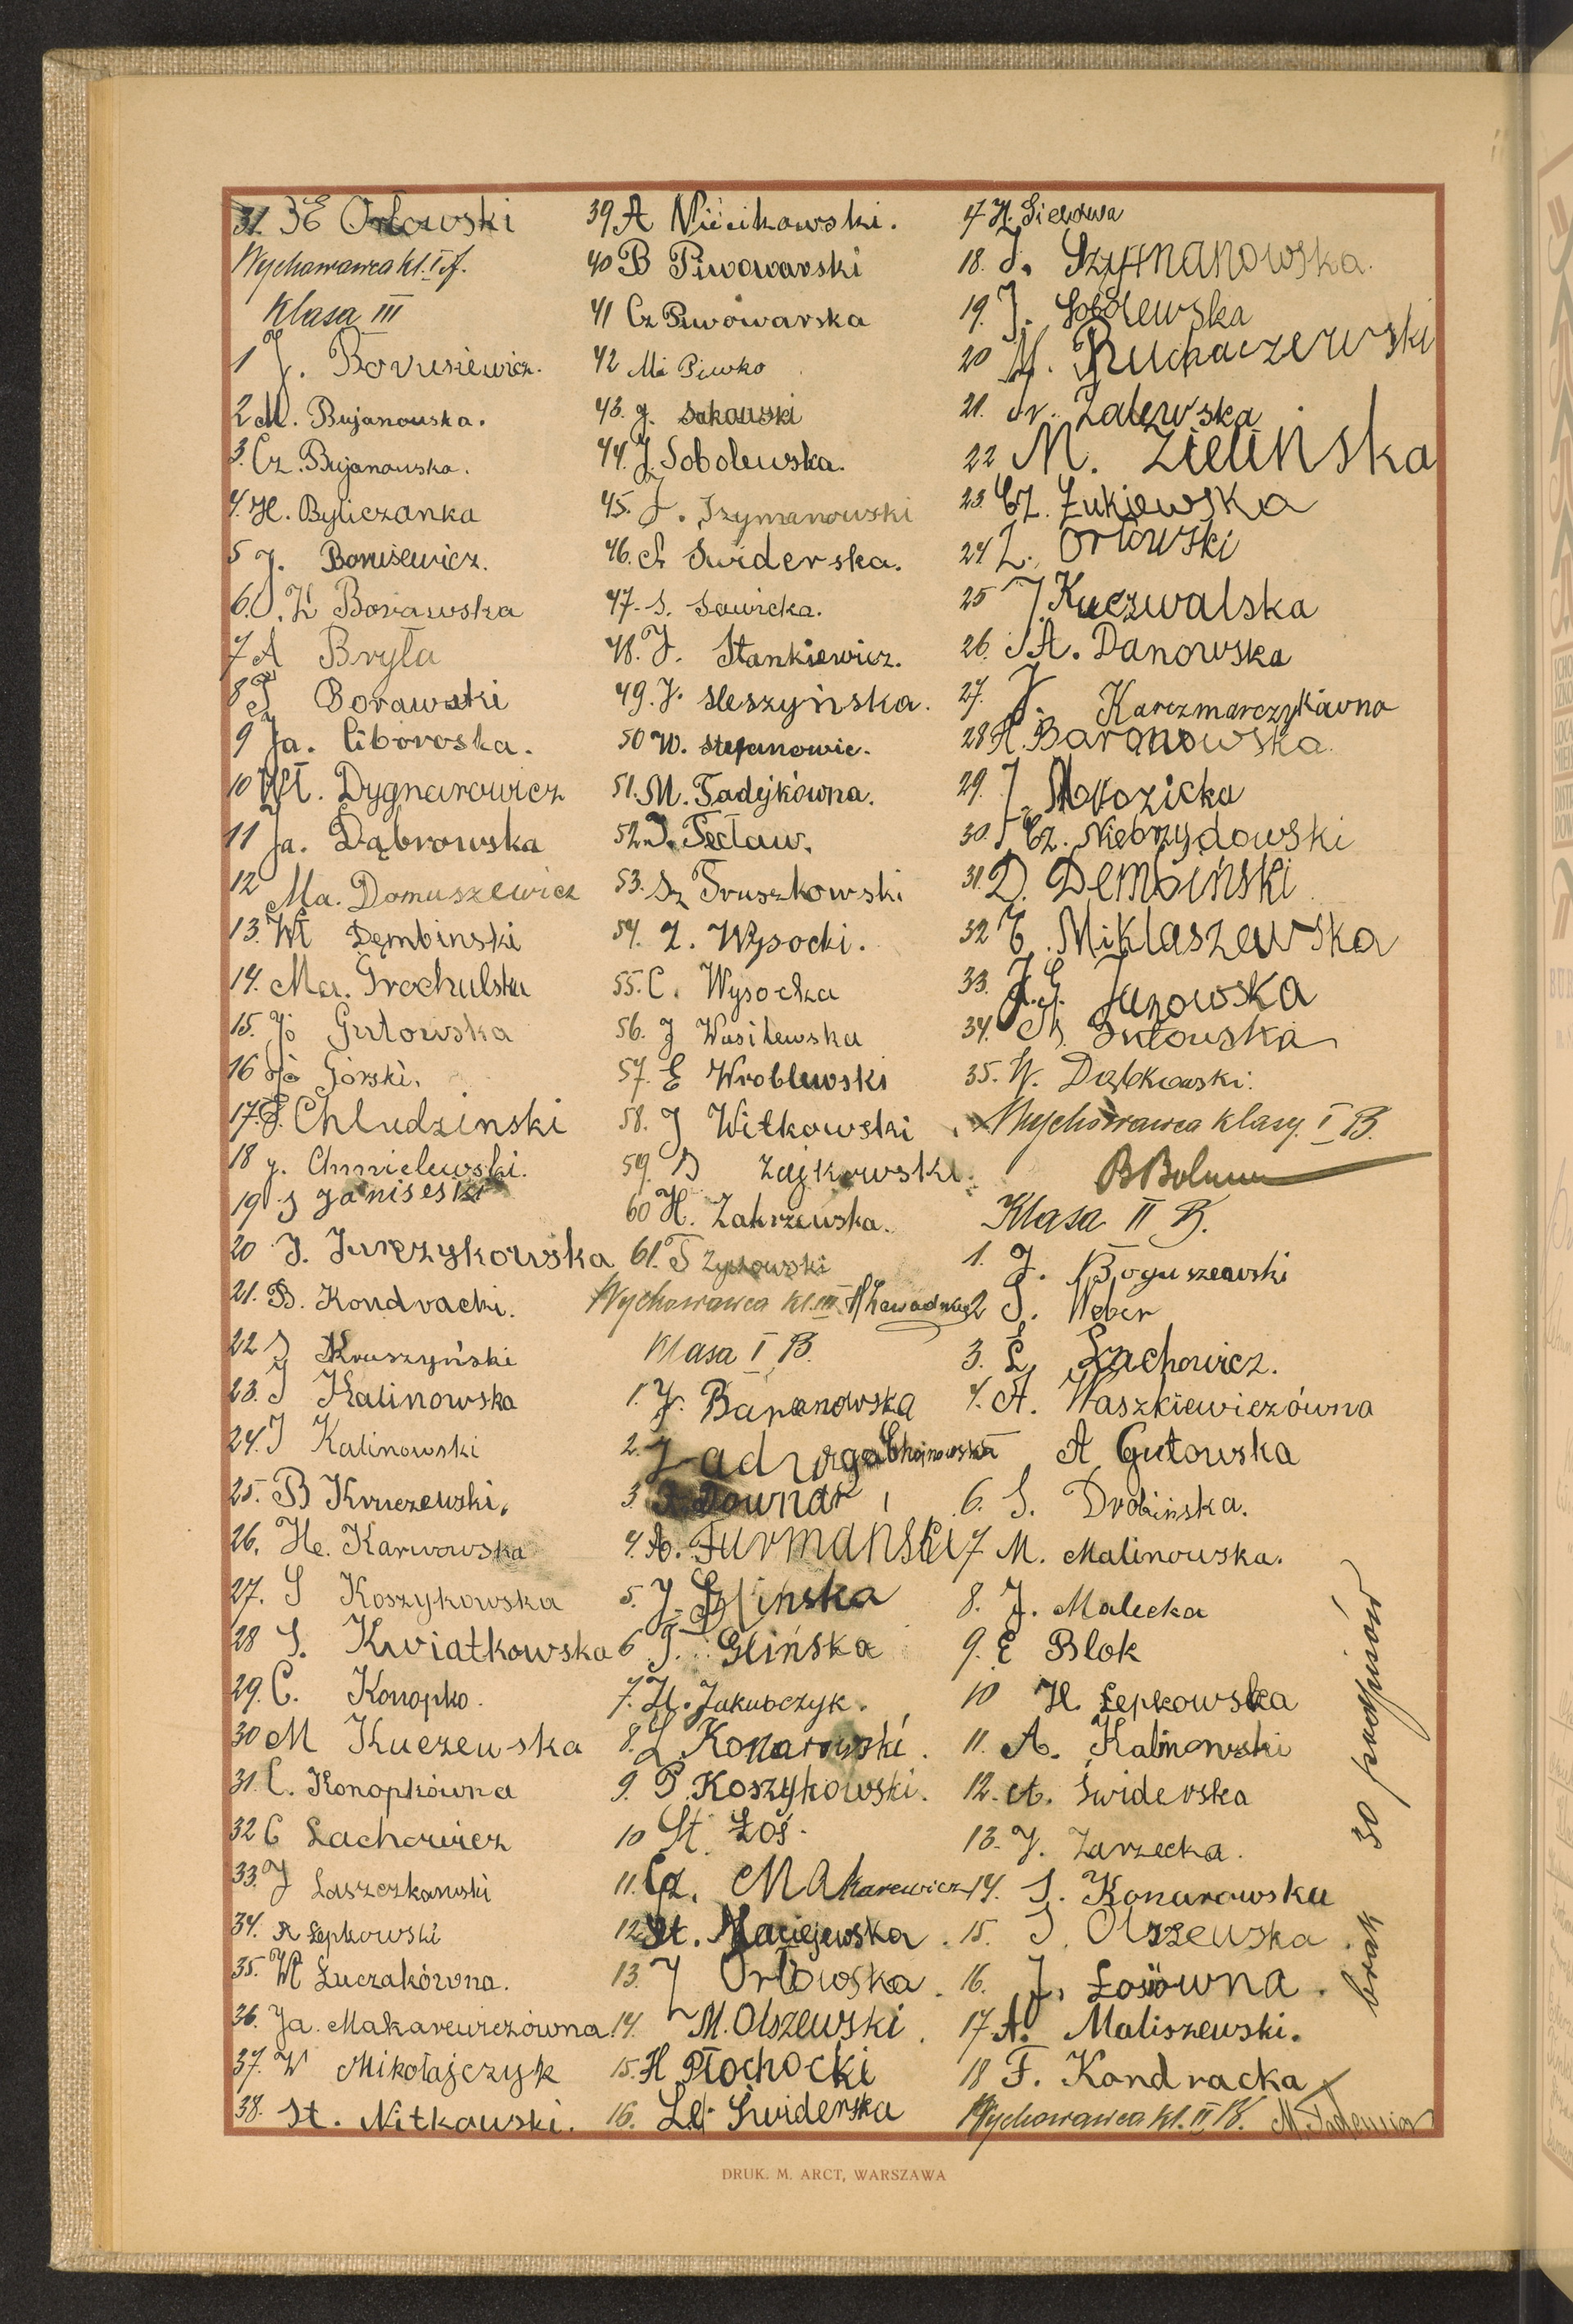 31. Orłowski
Wychowawca kl. I A.
Klasa III
1 J. Borusiewicz.
2 M. Bujanowska.
3. Cz. Bujanowska.
4. H. Byliczanka
5 J. Borusewicz.
6. Borawska
7 A Bryła
8 Borawski
9 Ja. Ciboroska.
10 Wł. Dygnarowicz
11 Ja. Dąbrowska
12 Ma. Domuszewicz
13. Wł Dęmbinski
14. Ma. Grochulska
15. Jó Gutowska
16 Jó Górski.
17. Chludzinski
18 J. Chmielewski.
19 J Janiseski
20 J. Jurczykowska
21. B. Kondracki.
22 J Kruszyński
23. J Kalinowska
24. J Kalinowski
25. B Kruczewski.
26. He. Karwowska
27. S Koszykowska
28 S. Kwiatkowska
29. C. Konopko.
30 M Kuczewska
31. C. Konopkówna
32 C Lachowicz
33. J Laszczkowski
34. R Łepkowski
35. Wł Łuczakówna.
36. Ja. Makarewiczówna.
37. W Mikołajczyk
38. St. Nitkowski.
39 A Nićikowski.
40 B Piwowarski
41 Cz Piwowarska
42 Mi Piwko
43. J. Sakowski
44. J. Sobolewska.
45. J. Szymanowski
46. Swiderska.
47. S. Sawicka.
48. J. Stankiewicz.
49. J. Sleszyńska.
50 W. Stefanowic.
51. M. Tadejkówna.
52. J. Tecław.
53. Sz Truszkowski
54. Z. Wysocki.
55. C. Wysocka
56. J Wasilewska
57. E Wroblewski
58. J Witkowski
59. B Zajkowski.
60 H. Zakrzewska.
61. T Żyłowski
Wychowawca kl. III
Klasa I B.
1. J. Baranowska
2. Zadroga Chojnowska
3. Downar
4. A. Furmanski
5. J. Glinska
6 J. Glińska
7. H. Jakubczyk.
8. L. Konarowski.
9. P. Koszykowski.
10 St. Łoś.
11. Cz. Makarewicz
12. St. Maciejewska.
13. J Orłowska.
14. M. Olszewski.
15. H Płochocki
16. Le. Świderska
17 H. Sielawa
18. J. Szymanowska.
19. J. Sobolewska
20 M. Ruchaczewski
21. Zalewska
22 M. Zielińska
23. Cz. Żukiewska
24 Z. Orłowski
25 J. Kuczwalska
26. A. Danowska
27. J. Karczmarczykówna
28 H. Baranowska.
29. J. Mrozicka
30. Cz. Niebrzydowski
31. D. Dembiński
32 C. Miklaszewska
33. Janowska
34. Gutowska
35. W. Dąbkowski.
Wychowawca klasy I B.
Klasa II B.
1. J. Boguszewski
2 J. Weber
3. E. Lachowicz.
4. A. Waszkiewiczówna
A Gutowska
6. S. Drobińska.
7 M. Malinowska.
8. J. Malecka
9. E Blok
10 H. Łepkowska
11. A. Kalinowski
12. A. Swiderska
13. J. Zarzecka.
14. S. Konarowska
15. J. Olszewska.
16. J. Łosówna.
17 A. Maliszewski.
18 F. Kondracka
Wychowawca kl. II B.
brak 30 podpisów
DRUK. M. ARCT, WARSZAWA